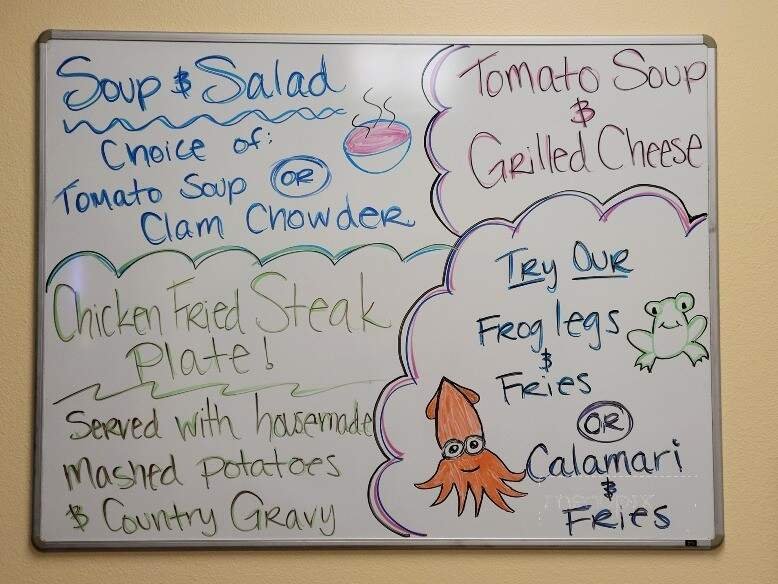 Soup & Salad
Choice of:
Tomato Soup OR
Clam Chowder
Tomato Soup
&
Grilled Cheese
Chicken Fried Steak
Plate!
Served with housemade
Mashed Potatoes
& Country Gravy
Try Our
Frog legs
&
Fries
OR
Calamari
&
Fries